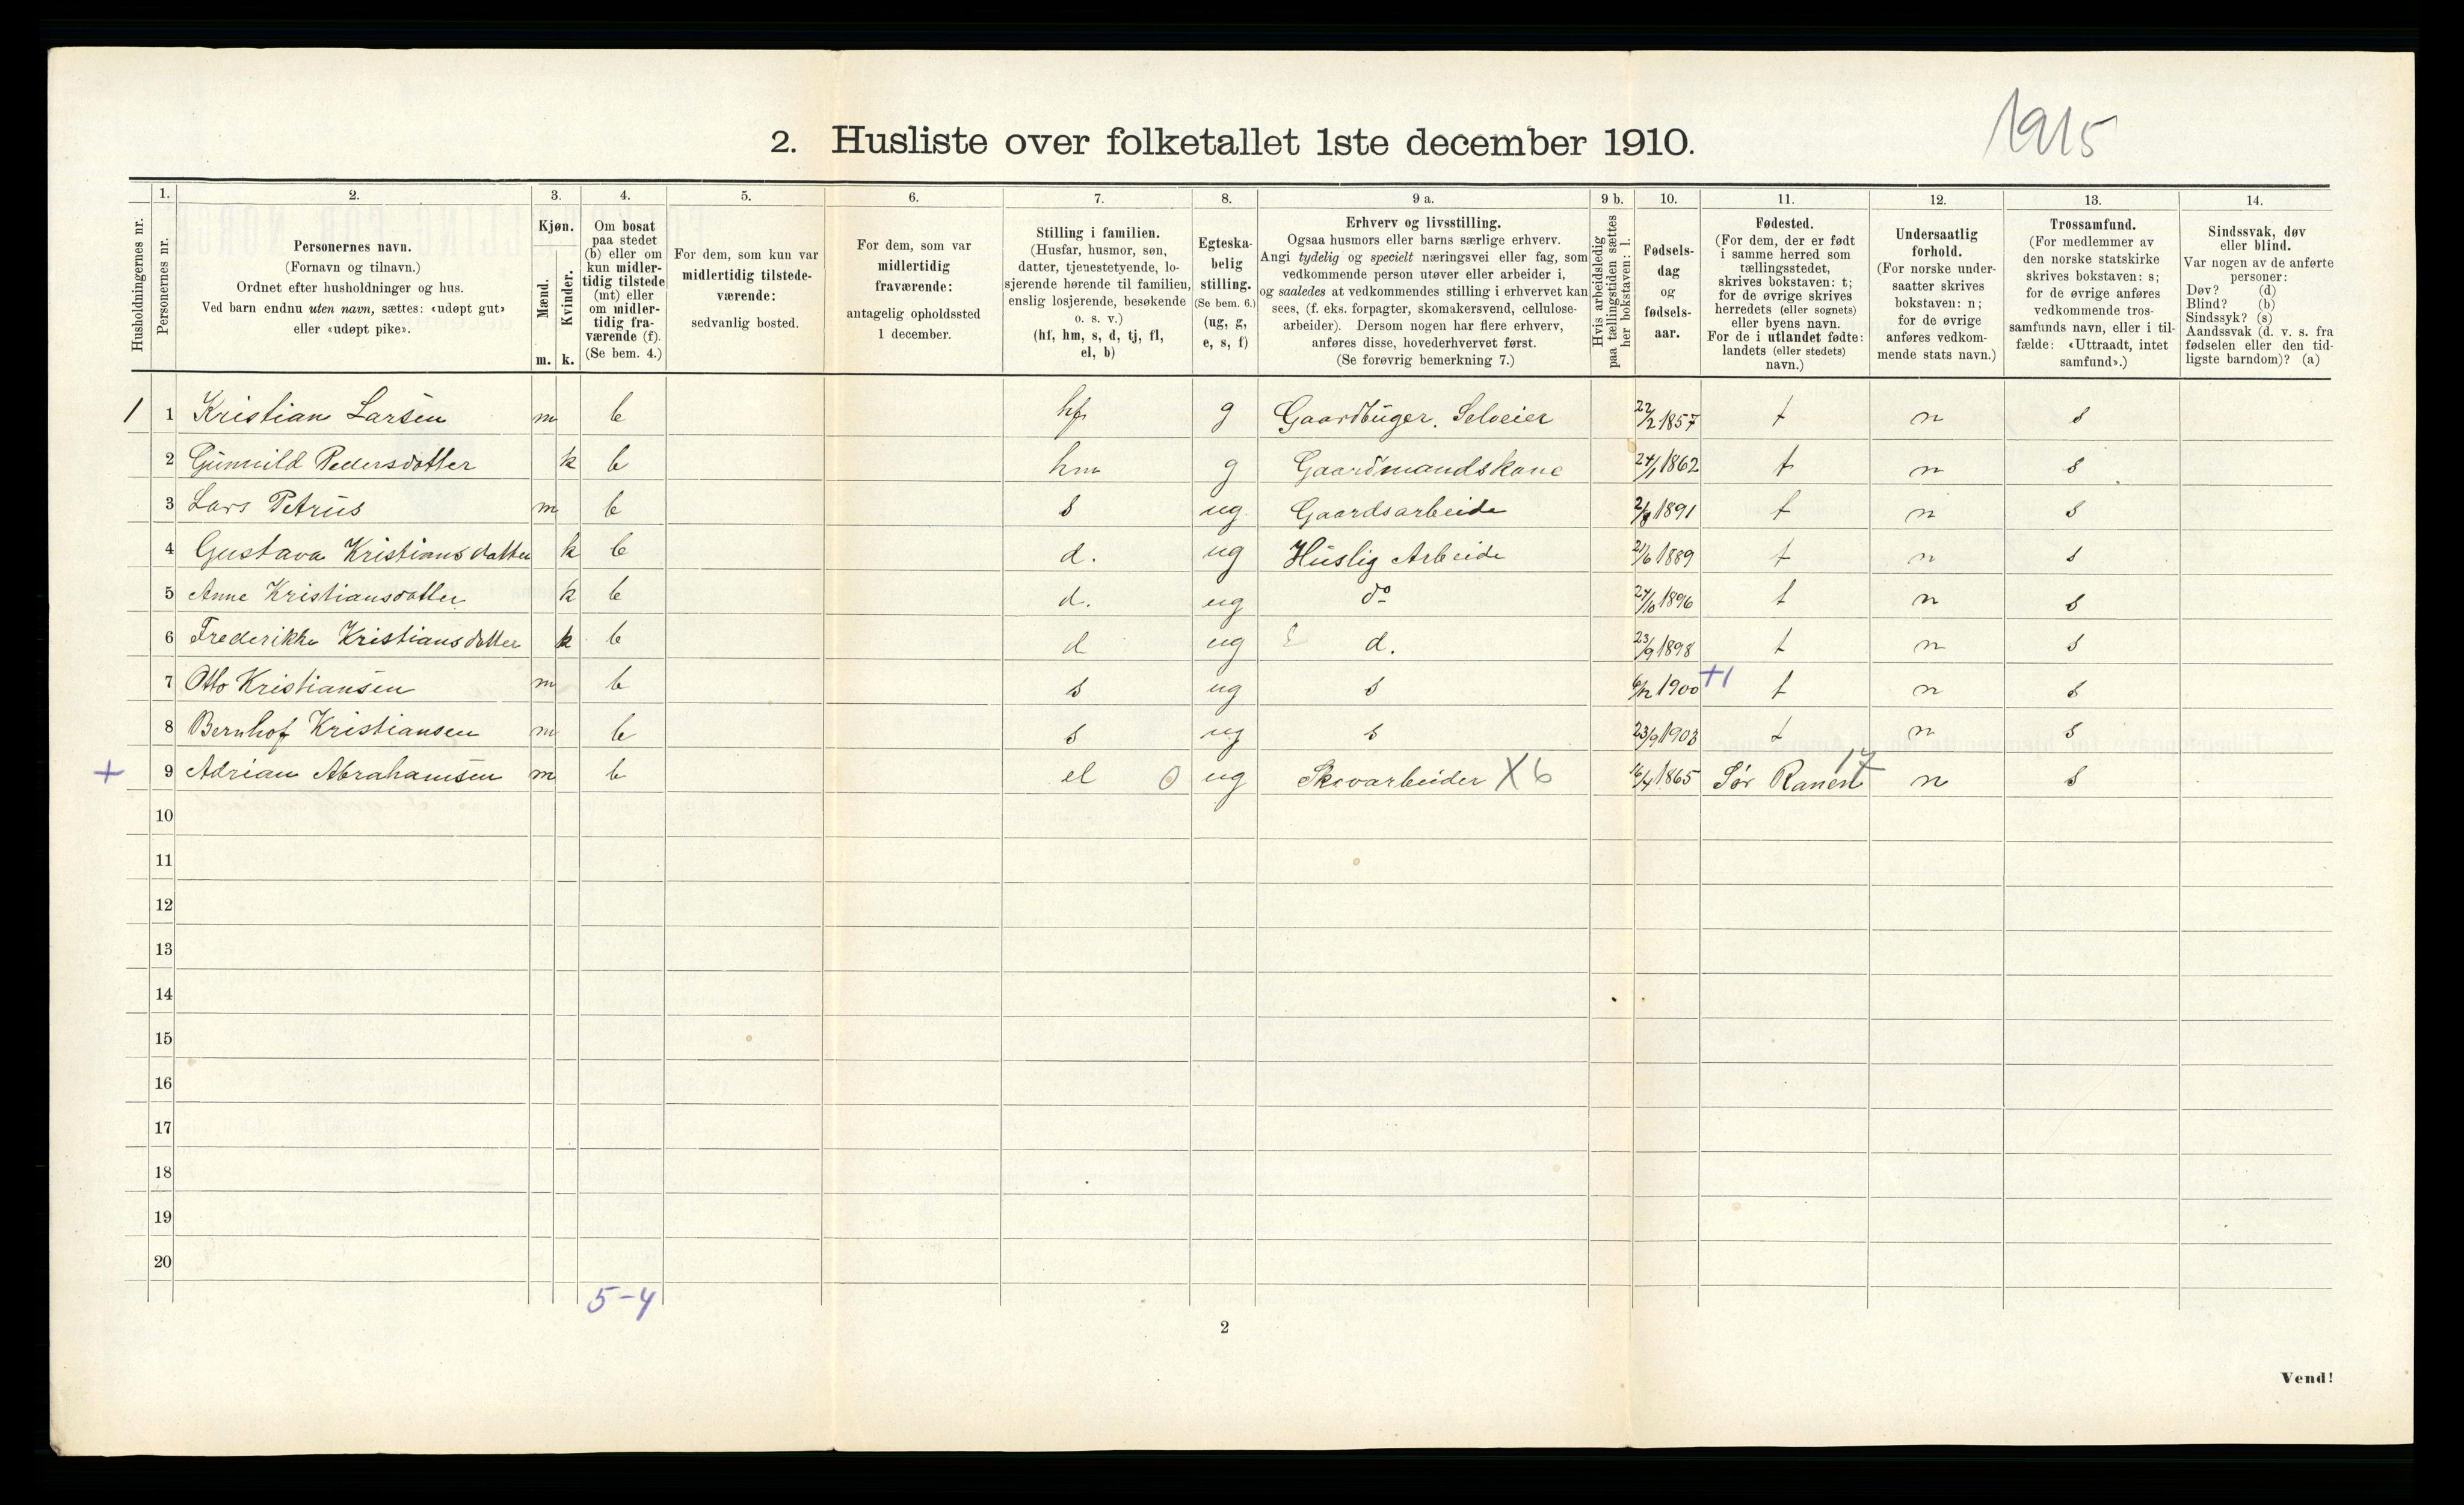 1915
2. Husliste over folketallet 1ste december 1910.
Husholdningernes nr.
1.
Personernes nr.
2.
Personernes navn.
(Fornavn og tilnavn.)
Ordnet efter husholdninger og hus.
Ved barn endnu uten navn, sættes: «udøpt gut»
eller «udøpt pike».
3.
Kjøn.
Mænd.
Kvinder.
m. k.
4.
Om bosat
paa stedet
(b) eller om
kun midler-
tidig tilstede
(mt) eller
om midler-
tidig fra-
værende (f).
(Se bem. 4.)
5.
For dem, som kun var
midlertidig tilstede-
værende:
sedvanlig bosted.
6.
For dem, som var
midlertidig
fraværende:
antagelig opholdssted
1 december.
7.
Stilling i familien.
(Husfar, husmor, søn,
datter, tjenestetyende, lo-
sjerende hørende til familien,
enslig losjerende, besøkende
o. s. v.)
(hf, hm, s, d, tj, fl,
el, b)
8.
Egteska-
belig
stilling.
(Se bem. 6.)
(ug, g,
e, s, f)
9 a.
Erhverv og livsstilling.
Ogsaa husmors eller barns særlige erhverv.
Angi tydelig og specielt næringsvei eller fag, som
vedkommende person utøver eller arbeider i,
og saaledes at vedkommendes stilling i erhvervet kan
sees, (f. eks. forpagter, skomakersvend, cellulose-
arbeider). Dersom nogen har flere erhverv,
anføres disse, hovederhvervet først.
(Se forøvrig bemerkning 7.)
9 b.
Hvis arbeidsledig
paa tællingstiden sættes
her bokstaven: l.
10.
Fødsels-
dag
og
fødsels-
aar.
11.
Fødested.
(For dem, der er født
i samme herred som
tællingsstedet,
skrives bokstaven: t;
for de øvrige skrives
herredets (eller sognets)
eller byens navn.
For de i utlandet fødte:
landets (eller stedets)
navn.)
12.
Undersaatlig
forhold.
(For norske under-
saatter skrives
bokstaven: n;
for de øvrige
anføres vedkom-
mende stats navn.)
13.
Trossamfund.
(For medlemmer av
den norske statskirke
skrives bokstaven: s;
for de øvrige anføres
vedkommende tros-
samfunds navn, eller i til-
fælde: «Uttraadt, intet
samfund».)
14.
Sindssvak, døv
eller blind.
Var nogen av de anførte
personer:
Døv? (d)
Blind? (b)
Sindssyk? (s)
Aandssvak (d. v. s. fra
fødselen eller den tid-
ligste barndom)? (a)
1 1 Kristian Larsen m b hf g Gaardbruger. Selveier 22/2 1857 t n s
2 Gunnild Pedersdatter k b hm g Gaardmandskone 24/1 1862 t n s
3 Lars Petrus m b s ug Gaardsarbeide 2/8 1891 t n s
4 Gustava Kristiansdatter k b d. ug Huslig Arbeide 21/6 1889 t n s
5 Anne Kristiansdatter k b d. ug do 24/10 1896 t n s
6 Frederikke Kristiansdatter k b d ug d. 23/9 1898 t n s
7 Otto Kristiansen m b s ug s 6/12 1900 +1 t n s
8 Bernhof Kristiansen m b s ug s 23/9 1903 t n s
+ 9 Adrian Abrahamsen m b el 0 ug Skovarbeider X6 16/4 1865 Sør Ranen 17 n s
10
11
12
13
14
15
16
17
18
19
20
5-4
2
Vend!